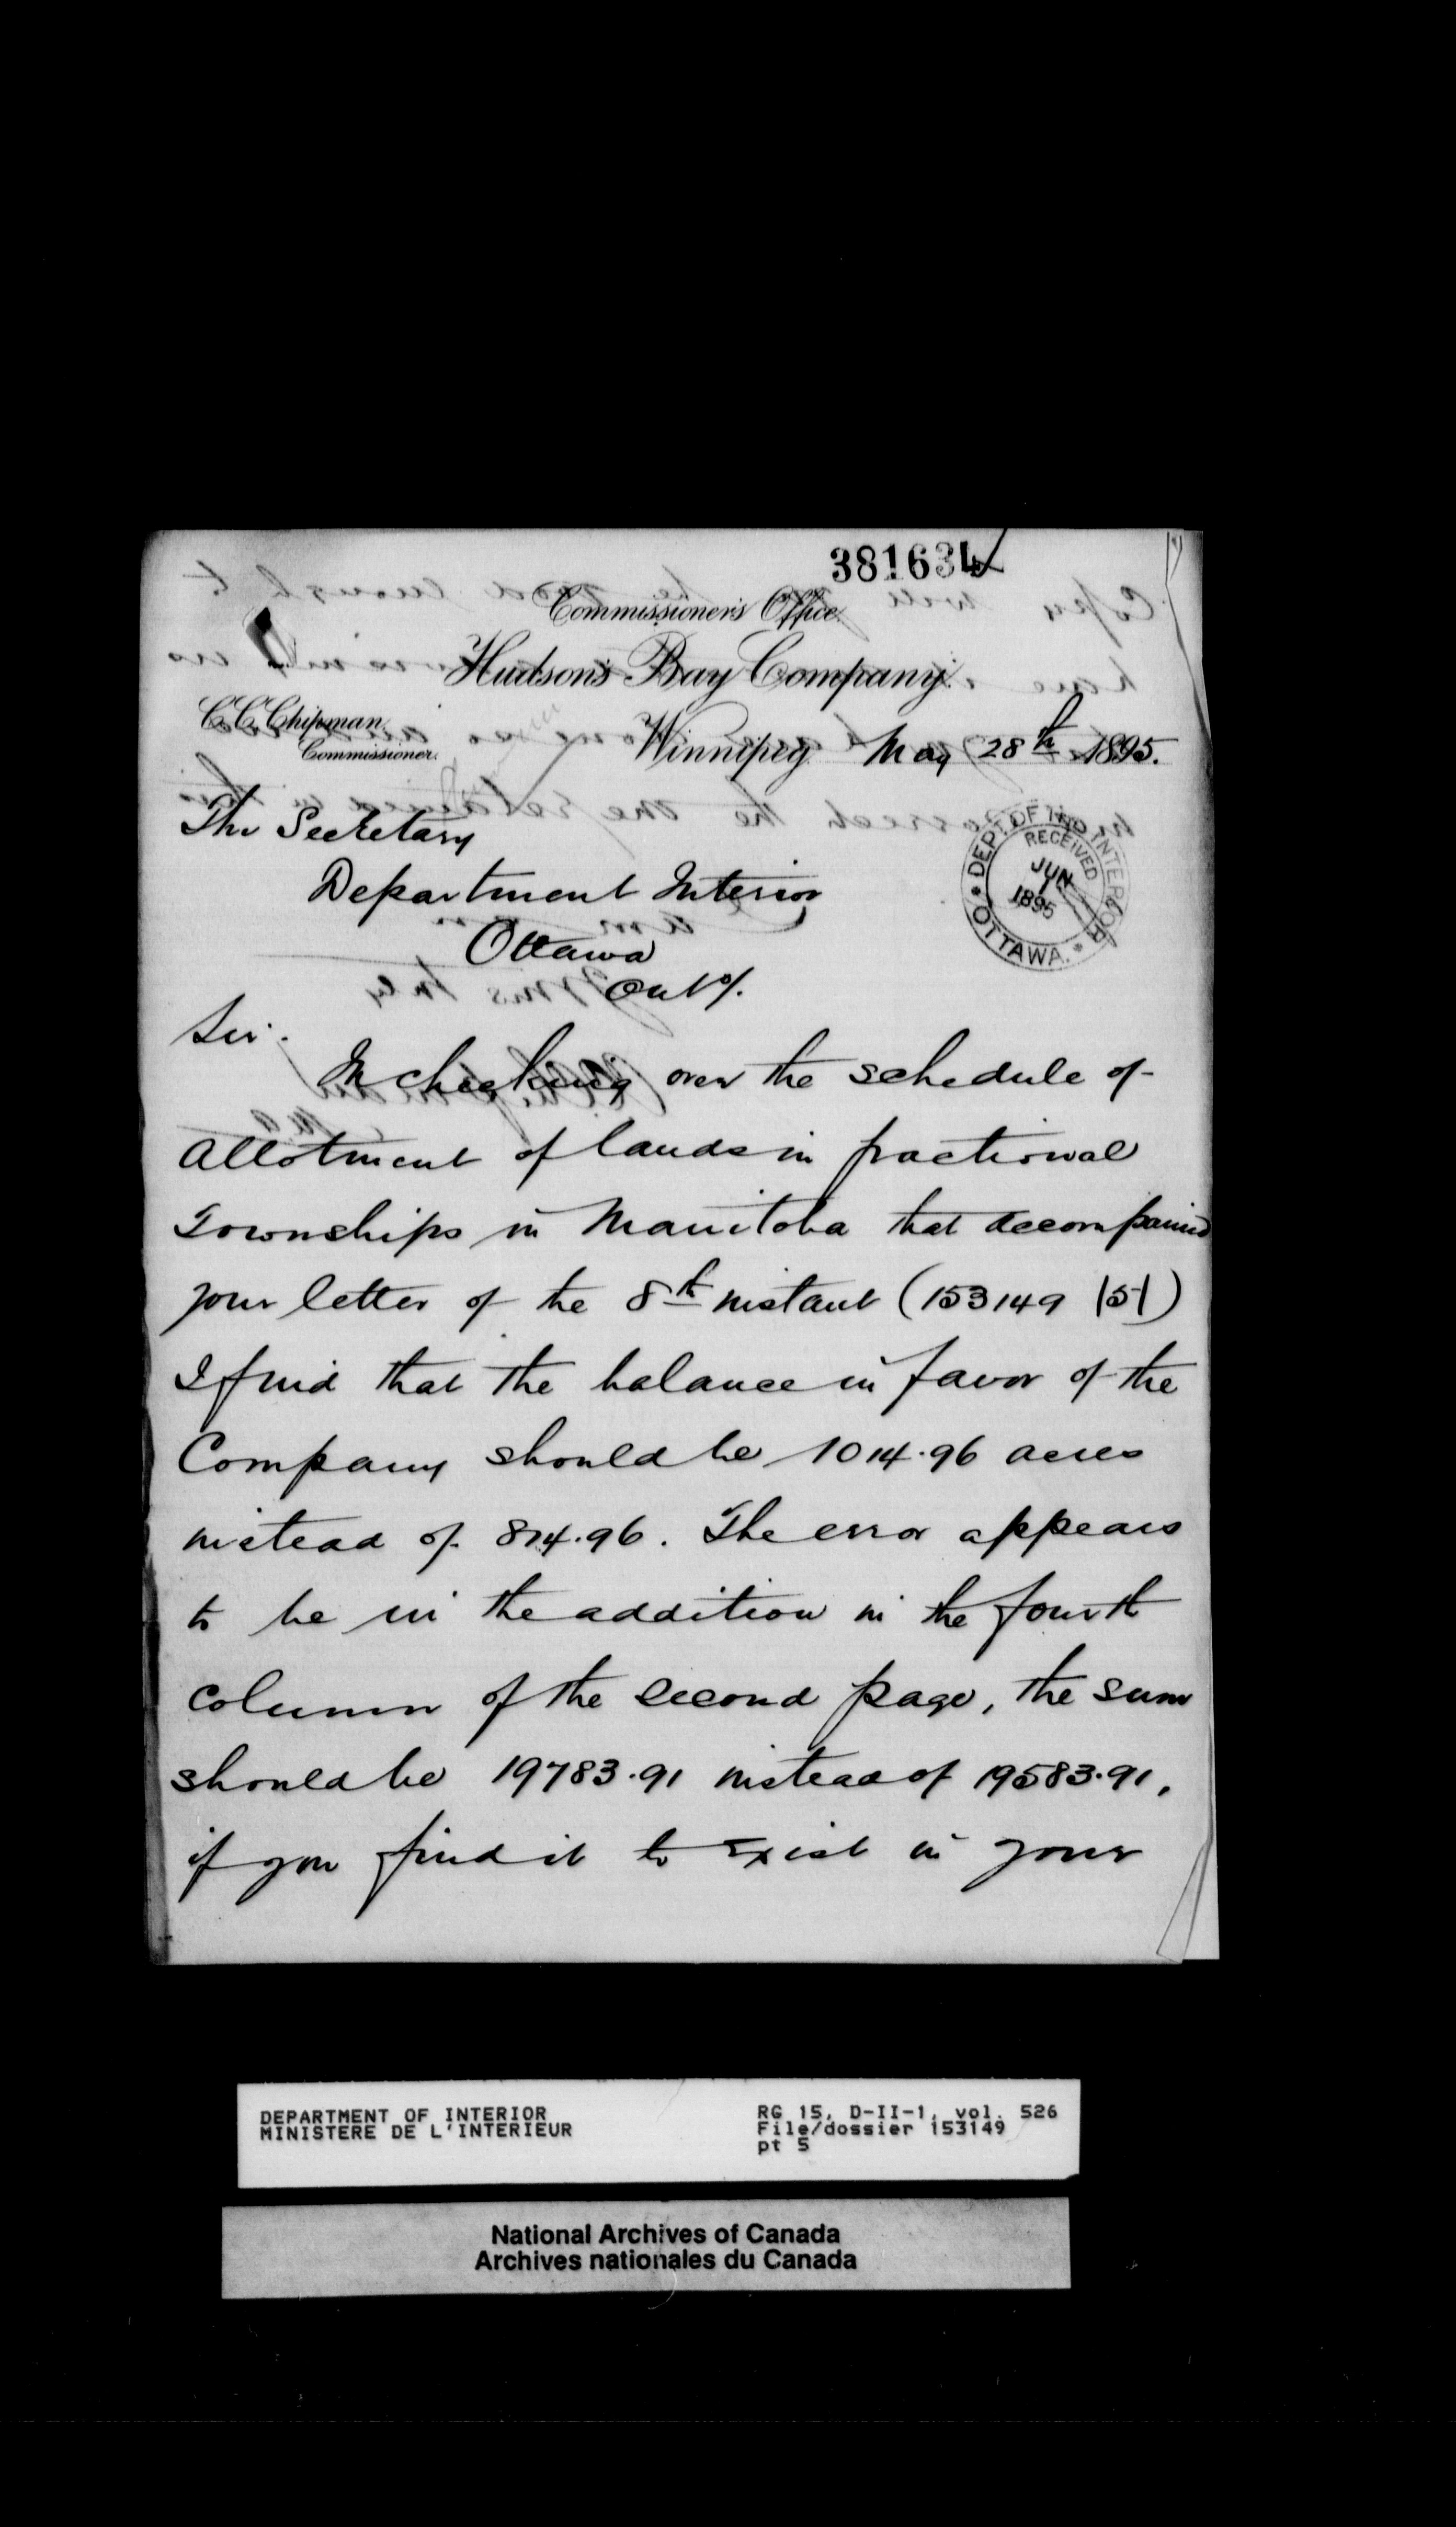 381634
Commissioner's Office.
Hudson's Bay Company.
C.C. Chipman.
Commissioner.
Winnipeg May 28th 1895.
DEPT. OF THE INTERIOR
RECEIVED
JUN
1
1895
OTTAWA.
The Secretary
Department Interior
Ottawa
Onto/.
Sir:
In checking over the schedule of
allotment of lands in fractional
Townships in Manitoba that accompanied
your letter of the 8th instant (153149 |5|)
I find that the balance in favor of the
Company should be 1014.96 acres
instead of 814.96. The error appears
to be in the addition in the fourth
column of the second page, the sum
should be 19783.91 instead of 19583.91,
if you find it to exist in your
DEPARTMENT OF INTERIOR
MINISTERE DE L'INTERIEUR
RG 15, D-II-1, vol. 526
File/dossier 153149
pt 5
National Archives of Canada
Archives nationales du Canada